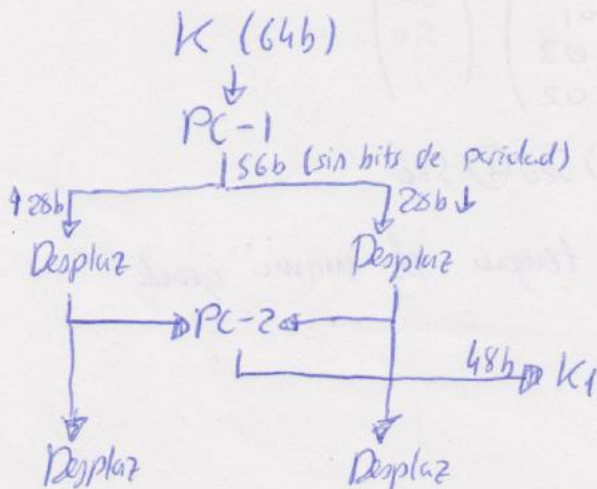 K (64b)
PC-1
56b (sin bits de paridad)
↑28b 28b↓
Desplaz Desplaz
PC-2
48b K1
Desplaz Desplaz